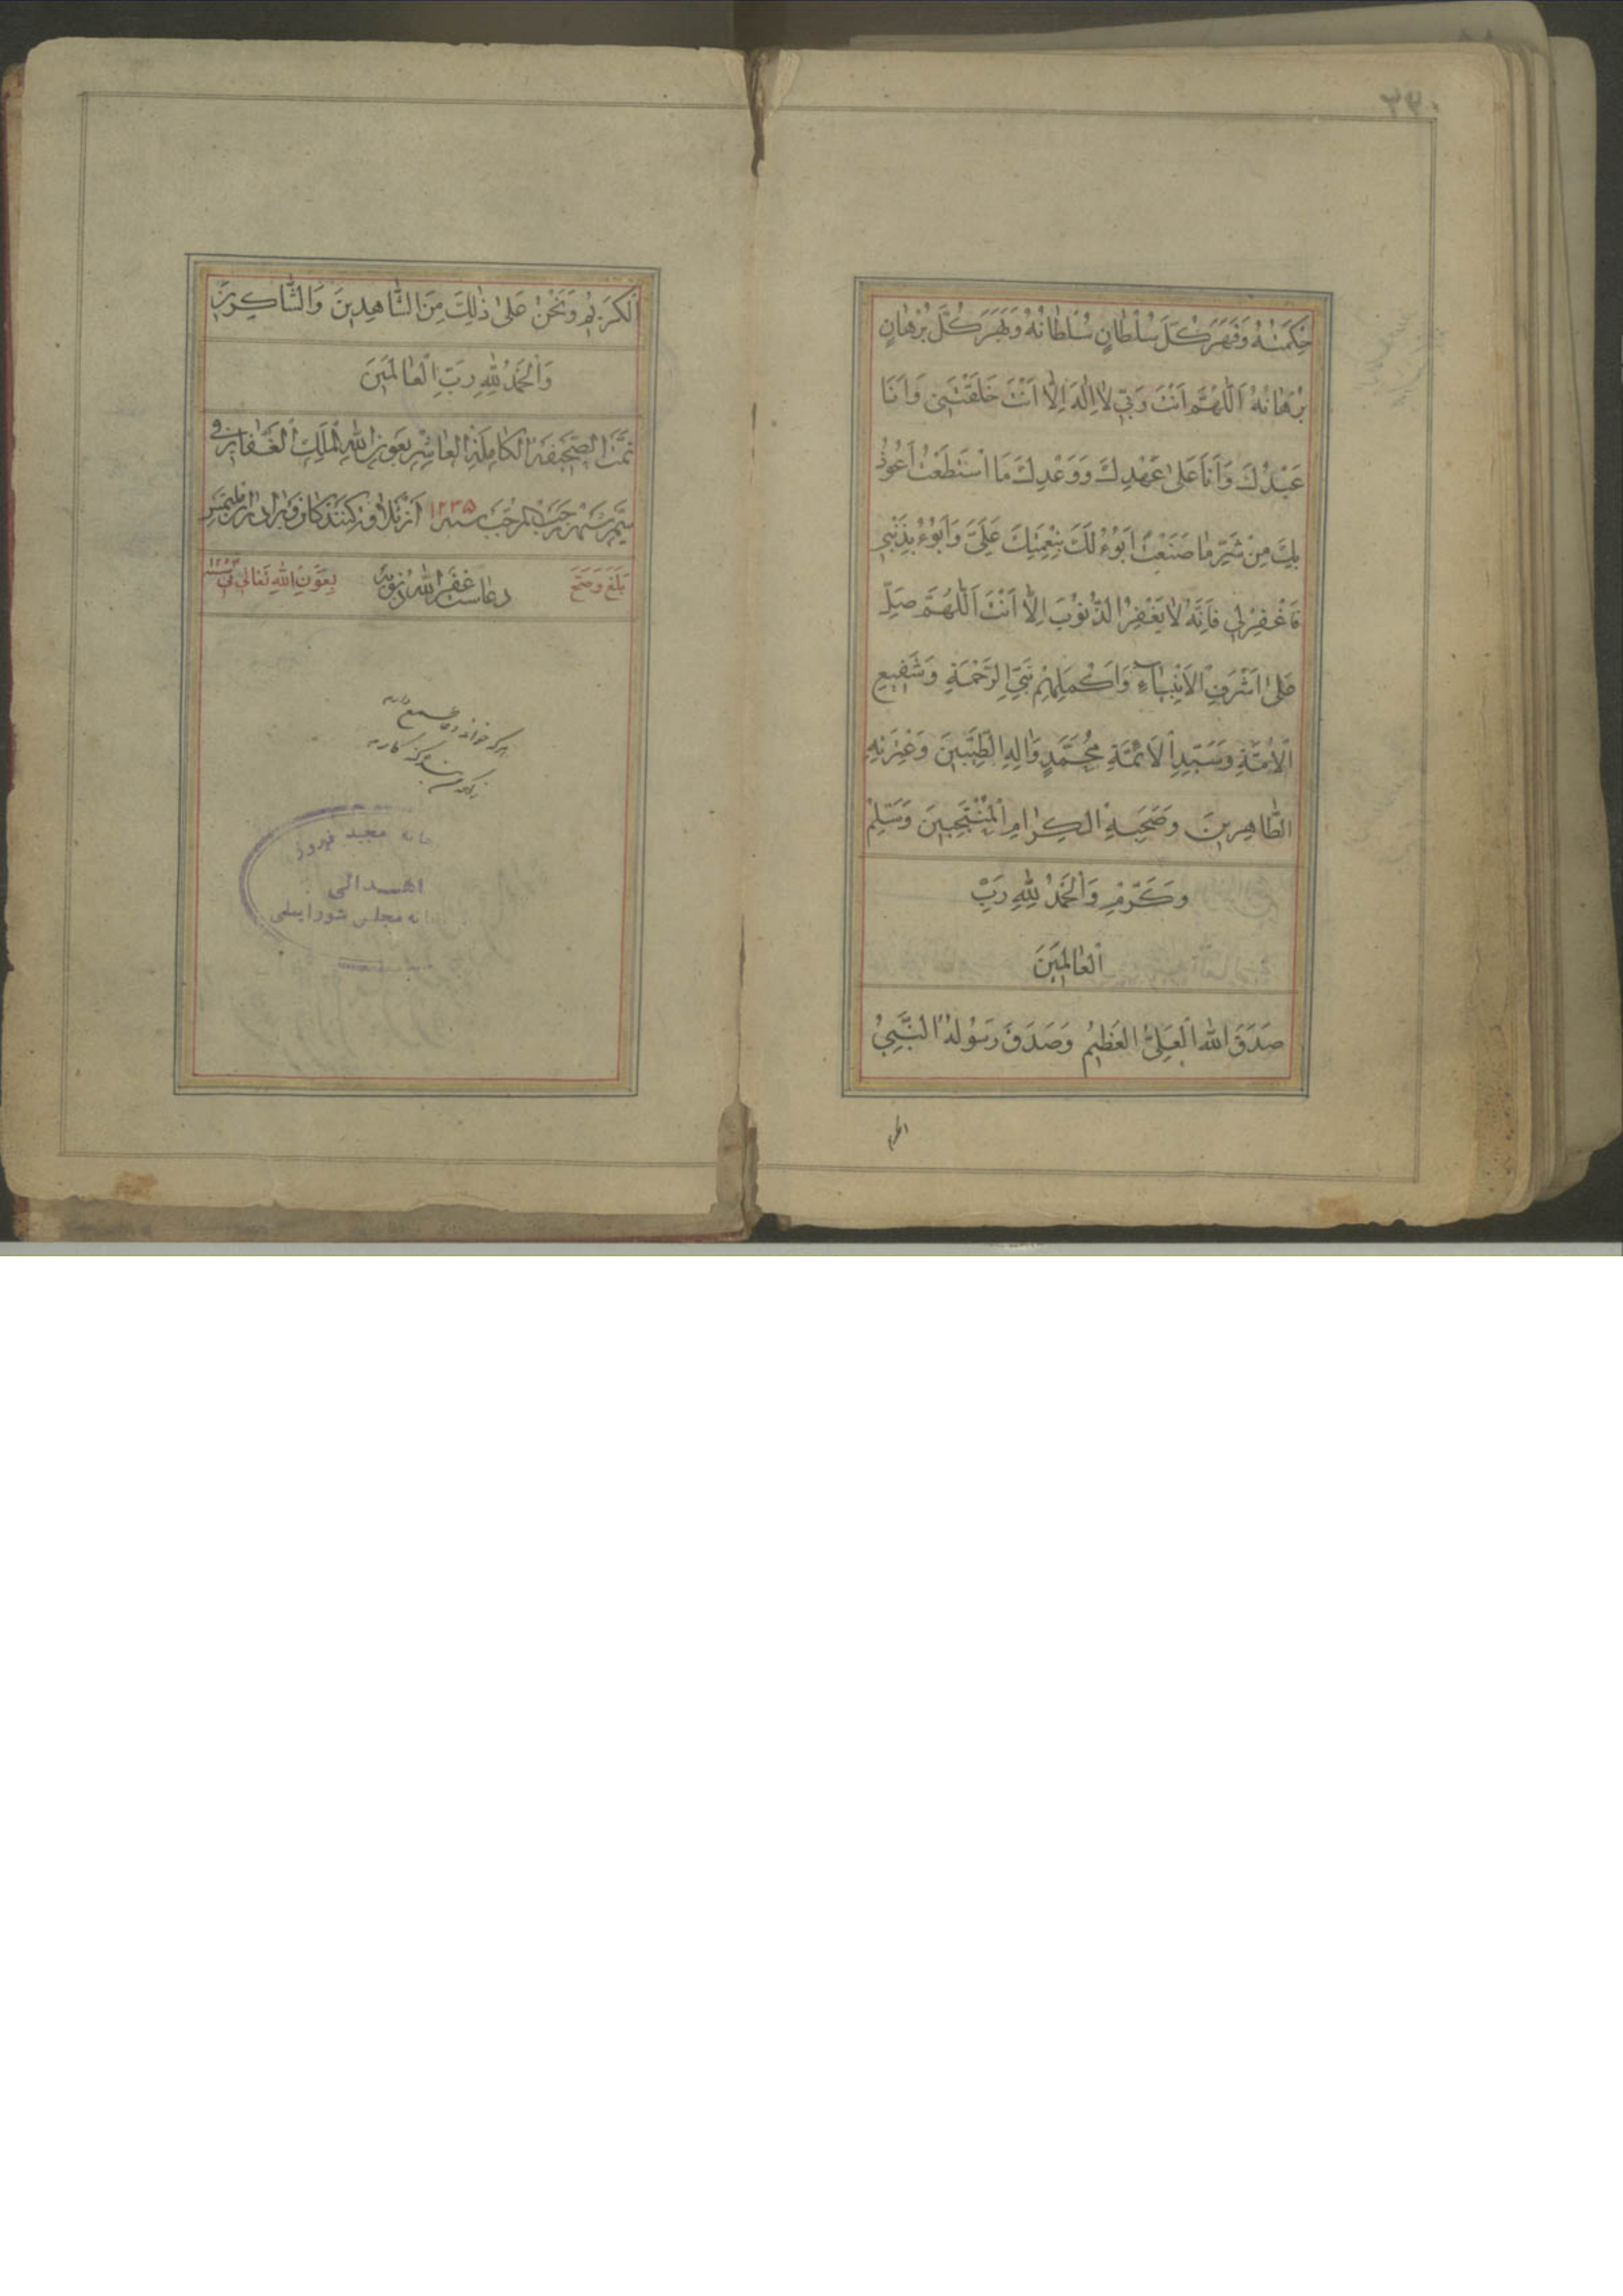 حِكْمَتُهُ وَقَهَرَ كُلَّ سُلْطَانٍ سُلْطَانُهُ وَبَهَرَ كُلَّ بُرْهَانٍ
بُرْهَانُهُ اَللّٰهُمَّ اَنْتَ رَبِّي لَا اِلٰهَ اِلَّا اَنْتَ خَلَقْتَنِي وَاَنَا
عَبْدُكَ وَاَنَا عَلٰى عَهْدِكَ وَوَعْدِكَ مَا اسْتَطَعْتُ اَعُوذُ
بِكَ مِنْ شَرِّ مَا صَنَعْتُ اَبُوْءُ لَكَ بِنِعْمَتِكَ عَلَيَّ وَاَبُوْءُ بِذَنْبِي
فَاغْفِرْ لِي فَاِنَّهُ لَا يَغْفِرُ الذُّنُوْبَ اِلَّا اَنْتَ اَللّٰهُمَّ صَلِّ
عَلٰى اَشْرَفِ الْاَنْبِيَاءِ وَاَكْمَلِهِمْ نَبِيِّ الرَّحْمَةِ وَشَفِيعِ
الْاُمَّةِ وَسَيِّدِ الْاَئِمَّةِ مُحَمَّدٍ وَاٰلِهِ الطَّيِّبِينَ وَعِتْرَتِهِ
الطَّاهِرِينَ وَصَحْبِهِ الْكِرَامِ الْمُنْتَجَبِينَ وَسَلِّمْ
وَكَرِّمْ وَالْحَمْدُ لِلّٰهِ رَبِّ
الْعَالَمِينَ
صَدَقَ اللّٰهُ الْعَلِيُّ الْعَظِيمُ وَصَدَقَ رَسُولُهُ النَّبِيُّ
الكريم
اَلْكَرِيْمُ وَنَحْنُ عَلٰى ذٰلِكَ مِنَ الشَّاهِدِينَ وَالشَّاكِرِينَ
وَالْحَمْدُ لِلّٰهِ رَبِّ الْعَالَمِينَ
تَمَّتْ الصَّحِيفَةُ الْكَامِلَةُ بِعَوْنِ اللّٰهِ الْمَلِكِ الْغَفَّارِ فِي
شَهْرِ رَجَبِ الْمُرَجَّبِ سنه ١٢٣٥ از تلاوت كنندكان
بَلَغَ وَصَحَّ دعاست غَفَرَ اللّٰهُ ذنوبه بِعَوْنِ اللّٰهِ تَعَالٰى فِي سنه
هر كه خواند دعا طمع دارم
زانكه من بنده گنه كارم
مجید فیروز
اهدائی
مجلس شورایملی